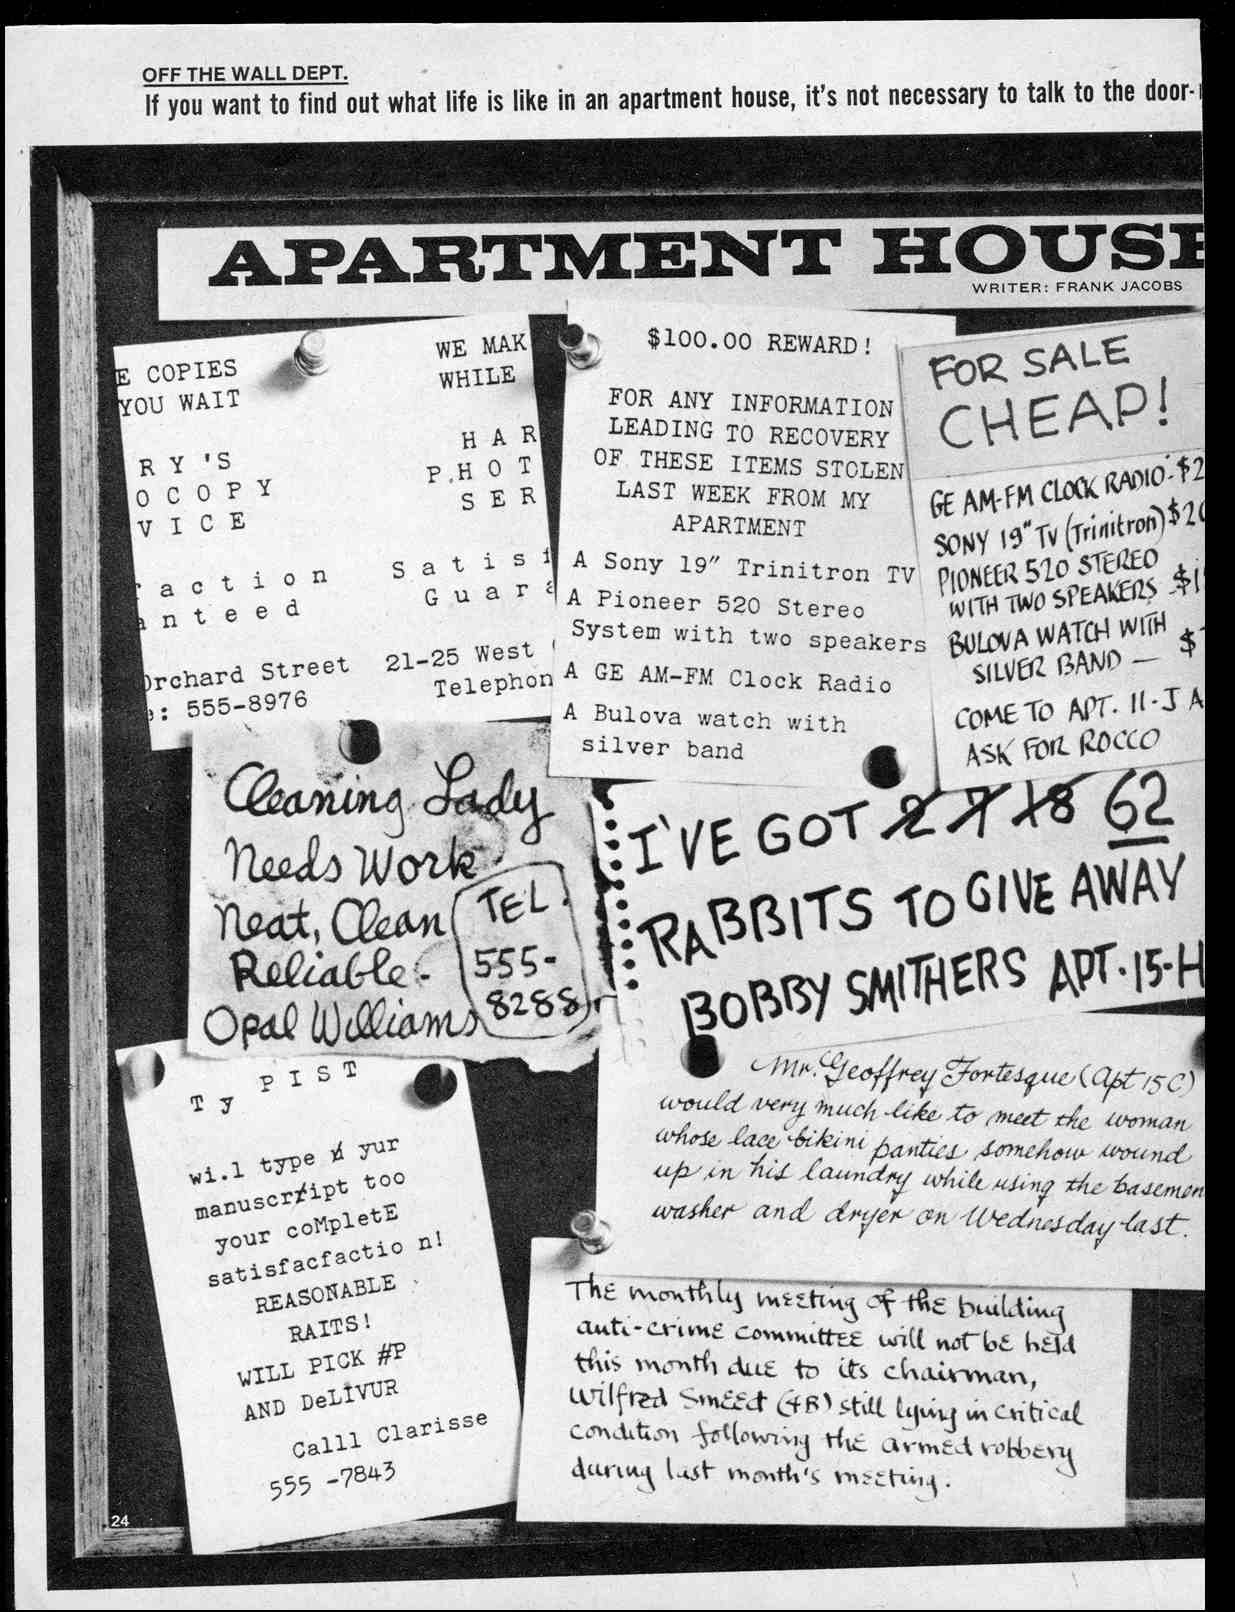 OFF THE WALL DEPT.
If you want to find out what life is like in an apartment house, it's not necessary to talk to the door-
APARTMENT HOUSE
WRITER: FRANK JACOBS
E COPIES WE MAK
YOU WAIT WHILE
RY'S HAR
OCOPY PHOT
VICE SER
action Satisf
anteed Guara
Orchard Street 21-25 West
e: 555-8976 Telephon
$100.00 REWARD!
FOR ANY INFORMATION
LEADING TO RECOVERY
OF THESE ITEMS STOLEN
LAST WEEK FROM MY
APARTMENT
A Sony 19" Trinitron TV
A Pioneer 520 Stereo
System with two speakers
A GE AM-FM Clock Radio
A Bulova watch with
silver band
FOR SALE
CHEAP!
GE AM-FM CLOCK RADIO-$2
SONY 19" TV (Trinitron) $20
PIONEER 520 STEREO
WITH TWO SPEAKERS $1
BULOVA WATCH WITH
SILVER BAND — $
COME TO APT. 11-J A
ASK FOR ROCCO
Cleaning Lady
Needs Work
Neat, Clean
Reliable-
Opal Williams
TEL.
555-
8288
I'VE GOT 2 7 18 62
RABBITS TO GIVE AWAY
BOBBY SMITHERS APT. 15-H
Mr. Geoffrey Fortesque (Apt 15C)
would very much like to meet the woman
whose lace bikini panties somehow wound
up in his laundry while using the basemen
washer and dryer on Wednesday last.
Ty PIST
wi.l type yur
manuscriipt too
your coMpletE
satisfacfactio n!
REASONABLE
RAITS!
WILL PICK #P
AND DeLIVUR
Calll Clarisse
555 -7843
The monthly meeting of the building
anti-crime committee will not be held
this month due to its chairman,
Wilfred Smeed (4B) still lying in critical
condition following the armed robbery
during last month's meeting.
24